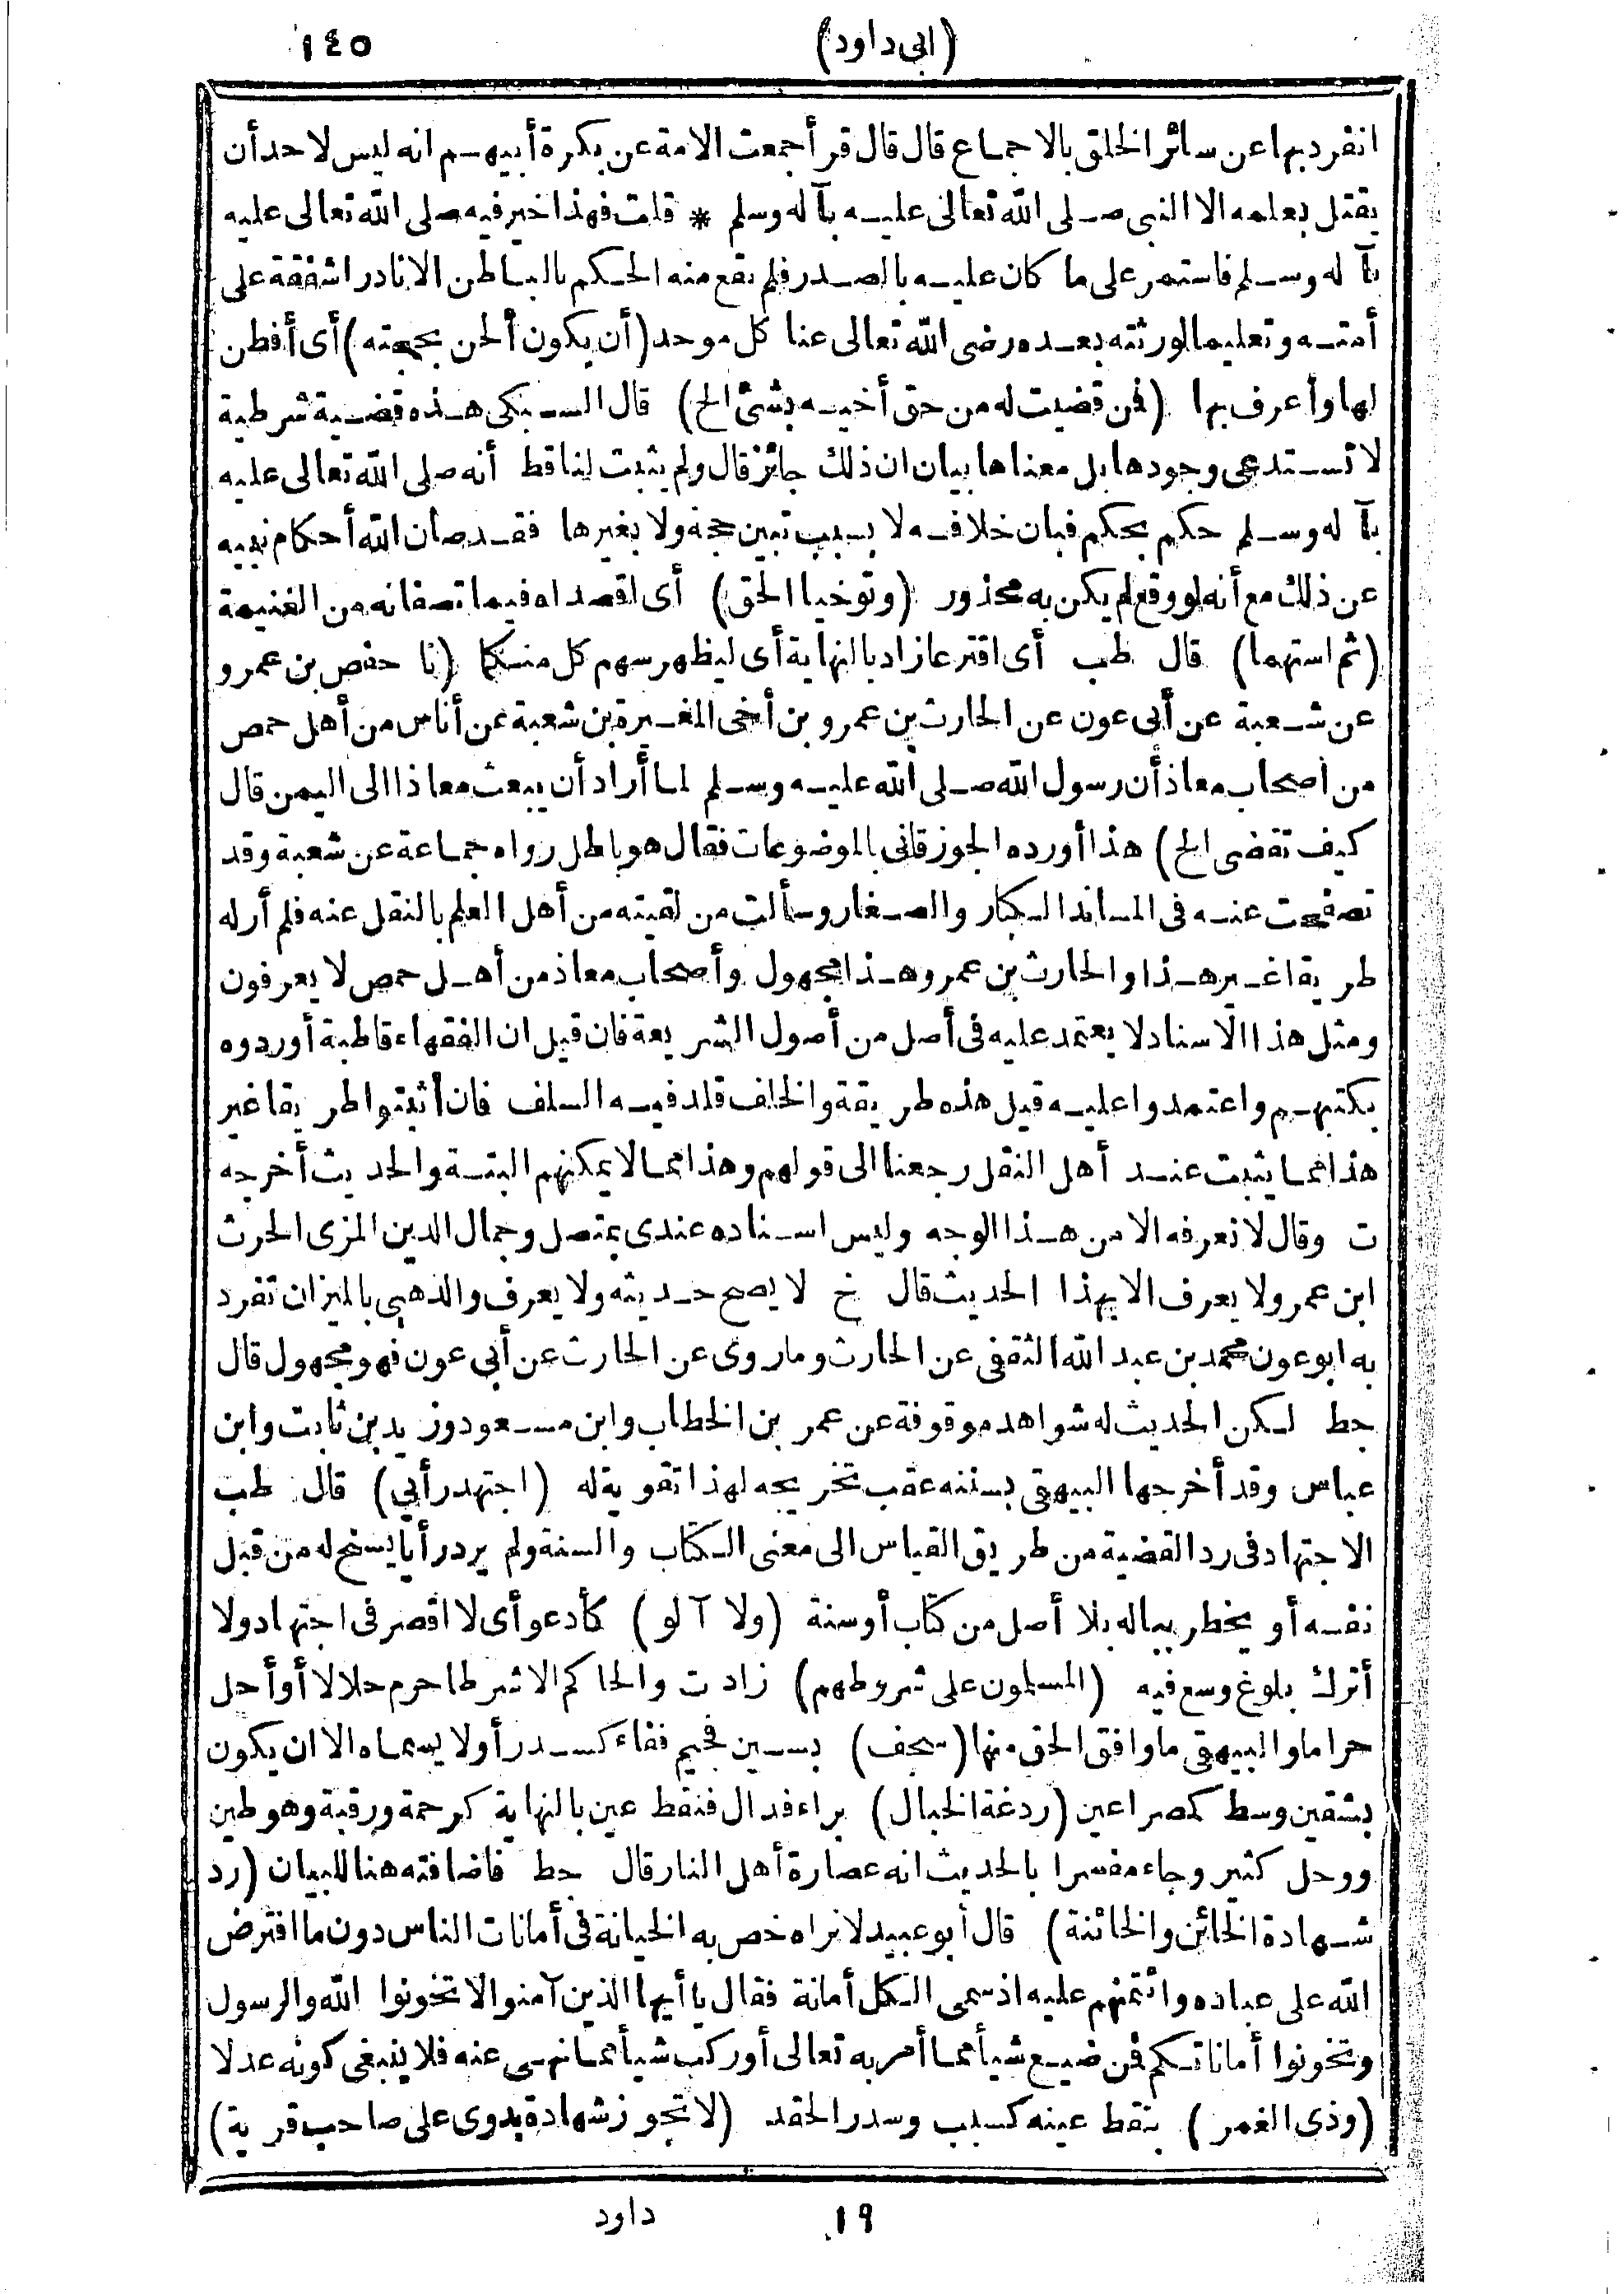 (ابى داود) ١٤٥
انفرد بها عن سائر الخلق بالاجماع قال قال قر أجمعت الامة عن بكرة أبيهم انه ليس لاحد أن
يقتل بعلمه الا النبى صلى الله تعالى عليه بآله وسلم * قلت فهذا خير فيه صلى الله تعالى عليه
بآله وسلم فاستمر على ما كان عليه بالصدر فلم يقع منه الحكم بالباطن الا نادرا شفقة على
أمته وتعليما لورثته بعده رضى الله تعالى عنا كل موحد (أن يكون ألحن بحجته) أى أفطن
لها وأعرف بها (فمن قضيت له من حق أخيه بشئ الخ) قال السبكى هذه قضية شرطية
لا تستدعى وجودها بل معناها بيان ان ذلك جائز قال ولم يثبت لنا قط أنه صلى الله تعالى عليه
بآله وسلم حكم بحكم فبان خلافه لا بسبب تبين حجة ولا بغيرها فقد صان الله أحكام نبيه
عن ذلك مع أنه لو وقع لم يكن به محذور (وتوخيا الحق) أى اقصداه فيما تصفانه من الغنيمة
(ثم استهما) قال طب أى اقترعا زاد بالنهاية أى ليظهر سهم كل منكما (نا حفص بن عمرو
عن شعبة عن أبى عون عن الحارث بن عمرو بن أخى المغيرة بن شعبة عن أناس من أهل حمص
من أصحاب معاذ أن رسول الله صلى الله عليه وسلم لما أراد أن يبعث معاذا الى اليمن قال
كيف تقضى الخ) هذا أورده الجوزقانى بالموضوعات فقال هو باطل رواه جماعة عن شعبة وقد
تصفحت عنه فى المساند الكبار والصغار وسألت من لقيته من أهل العلم بالنقل عنه فلم أرله
طريقا غير هذا والحارث بن عمرو هذا مجهول وأصحاب معاذ من أهل حمص لا يعرفون
ومثل هذا الاسناد لا يعتمد عليه فى أصل من أصول الشريعة فان قيل ان الفقهاء قاطبة أوردوه
بكتبهم واعتمدوا عليه قيل هذه طريقة والخلف قلد فيه السلف فان أثبتوا طريقا غير
هذا مما يثبت عند أهل النقل رجعنا الى قولهم وهذا مما لا يمكنهم البتة والحديث أخرجه
ت وقال لا نعرفه الا من هذا الوجه وليس اسناده عندى بمتصل وجمال الدين المزى الحرث
ابن عمر ولا يعرف الا بهذا الحديث قال خ لا يصح حديثه ولا يعرف والذهبى بالميزان تفرد
به ابو عون محمد بن عبد الله الثقفى عن الحارث وما روى عن الحارث عن أبى عون فهو مجهول قال
حط لكن الحديث له شواهد موقوفة عن عمر بن الخطاب وابن مسعود وزيد بن ثابت وابن
عباس وقد أخرجها البيهقى بسننه عقب تخريجه لهذا تقوية له (اجتهد رأيى) قال طب
الاجتهاد فى رد القضية من طريق القياس الى معنى الكتاب والسنة ولم يرد رأيا يسنح له من قبل
نفسه أو يخطر بباله بلا أصل من كتاب أو سنة (ولا آلو) كأدعو أى لا اقصر فى اجتهاد ولا
أترك بلوغ وسع فيه (المسلمون على شروطهم) زاد ت والحاكم الا شرطا حرم حلالا أو أحل
حراما والبيهقى ما وافق الحق منها (سجف) بسين فجيم ففاء كسدر أولا يسماه الا ان يكون
بشقين وسط كمصراعين (ردغة الخبال) براء فدال فنقط عين بالنهاية كرحمة ورقبة وهو طين
ووحل كثير وجاء مفسرا بالحديث انه عصارة أهل النار قال حط فاضافته هنا للبيان (رد
شهادة الخائن والخائنة) قال أبو عبيد لا نراه خص به الخيانة فى أمانات الناس دون ما افترض
الله على عباده وائتمنهم عليه اذ سمى الكل أمانة فقال يا أيها الذين آمنوا لا تخونوا الله والرسول
وتخونوا أماناتكم فمن ضيع شيأ مما أمر به تعالى أو ركب شيأ مما نهى عنه فلا ينبغى كونه عدلا
(وذى الغمر) بنقط عينه كسلب وسدر الحقد (لا تجوز شهادة بدوى على صاحب قرية)
١٩ داود